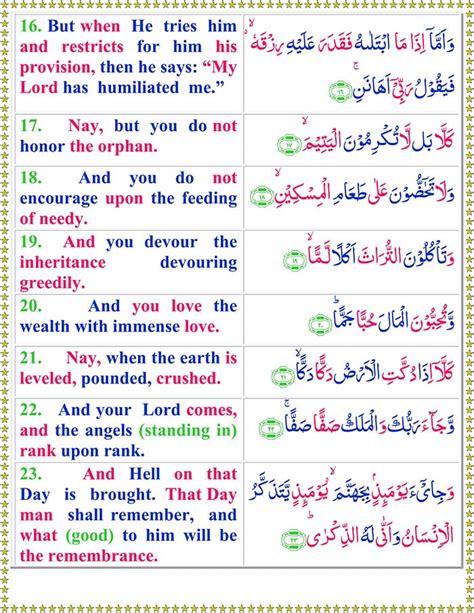 16. But when He tries him
and restricts for him his
provision, then he says: “My
Lord has humiliated me.”
وَاَمَّاۤ اِذَا مَا ابْتَلٰىهُ فَقَدَرَ عَلَيْهِ رِزْقَهٗ ۙ
فَيَقُوْلُ رَبِّىْۤ اَهَانَنِ ۚ ١٦
17. Nay, but you do not
honor the orphan.
كَلَّا بَلْ لَّا تُكْرِمُوْنَ الْيَتِيْمَ ۙ ١٧
18. And you do not
encourage upon the feeding
of needy.
وَلَا تَحٰٓضُّوْنَ عَلٰى طَعَامِ الْمِسْكِيْنِ ۙ ١٨
19. And you devour the
inheritance devouring
greedily.
وَتَاْكُلُوْنَ التُّرَاثَ اَكْلًا لَّمًّا ۙ ١٩
20. And you love the
wealth with immense love.
وَّتُحِبُّوْنَ الْمَالَ حُبًّا جَمًّا ؕ ٢٠
21. Nay, when the earth is
leveled, pounded, crushed.
كَلَّاۤ اِذَا دُكَّتِ الْاَرْضُ دَكًّا دَكًّا ۙ ٢١
22. And your Lord comes,
and the angels (standing in)
rank upon rank.
وَّجَآءَ رَبُّكَ وَالْمَلَكُ صَفًّا صَفًّا ۚ ٢٢
23. And Hell on that
Day is brought. That Day
man shall remember, and
what (good) to him will be
the remembrance.
وَجِاىْٓءَ يَوْمَٮِٕذٍۢ بِجَهَنَّمَ ۙ يَوْمَٮِٕذٍ يَّتَذَكَّرُ
الْاِنْسَانُ وَاَنّٰى لَهُ الذِّكْرٰى ؕ ٢٣